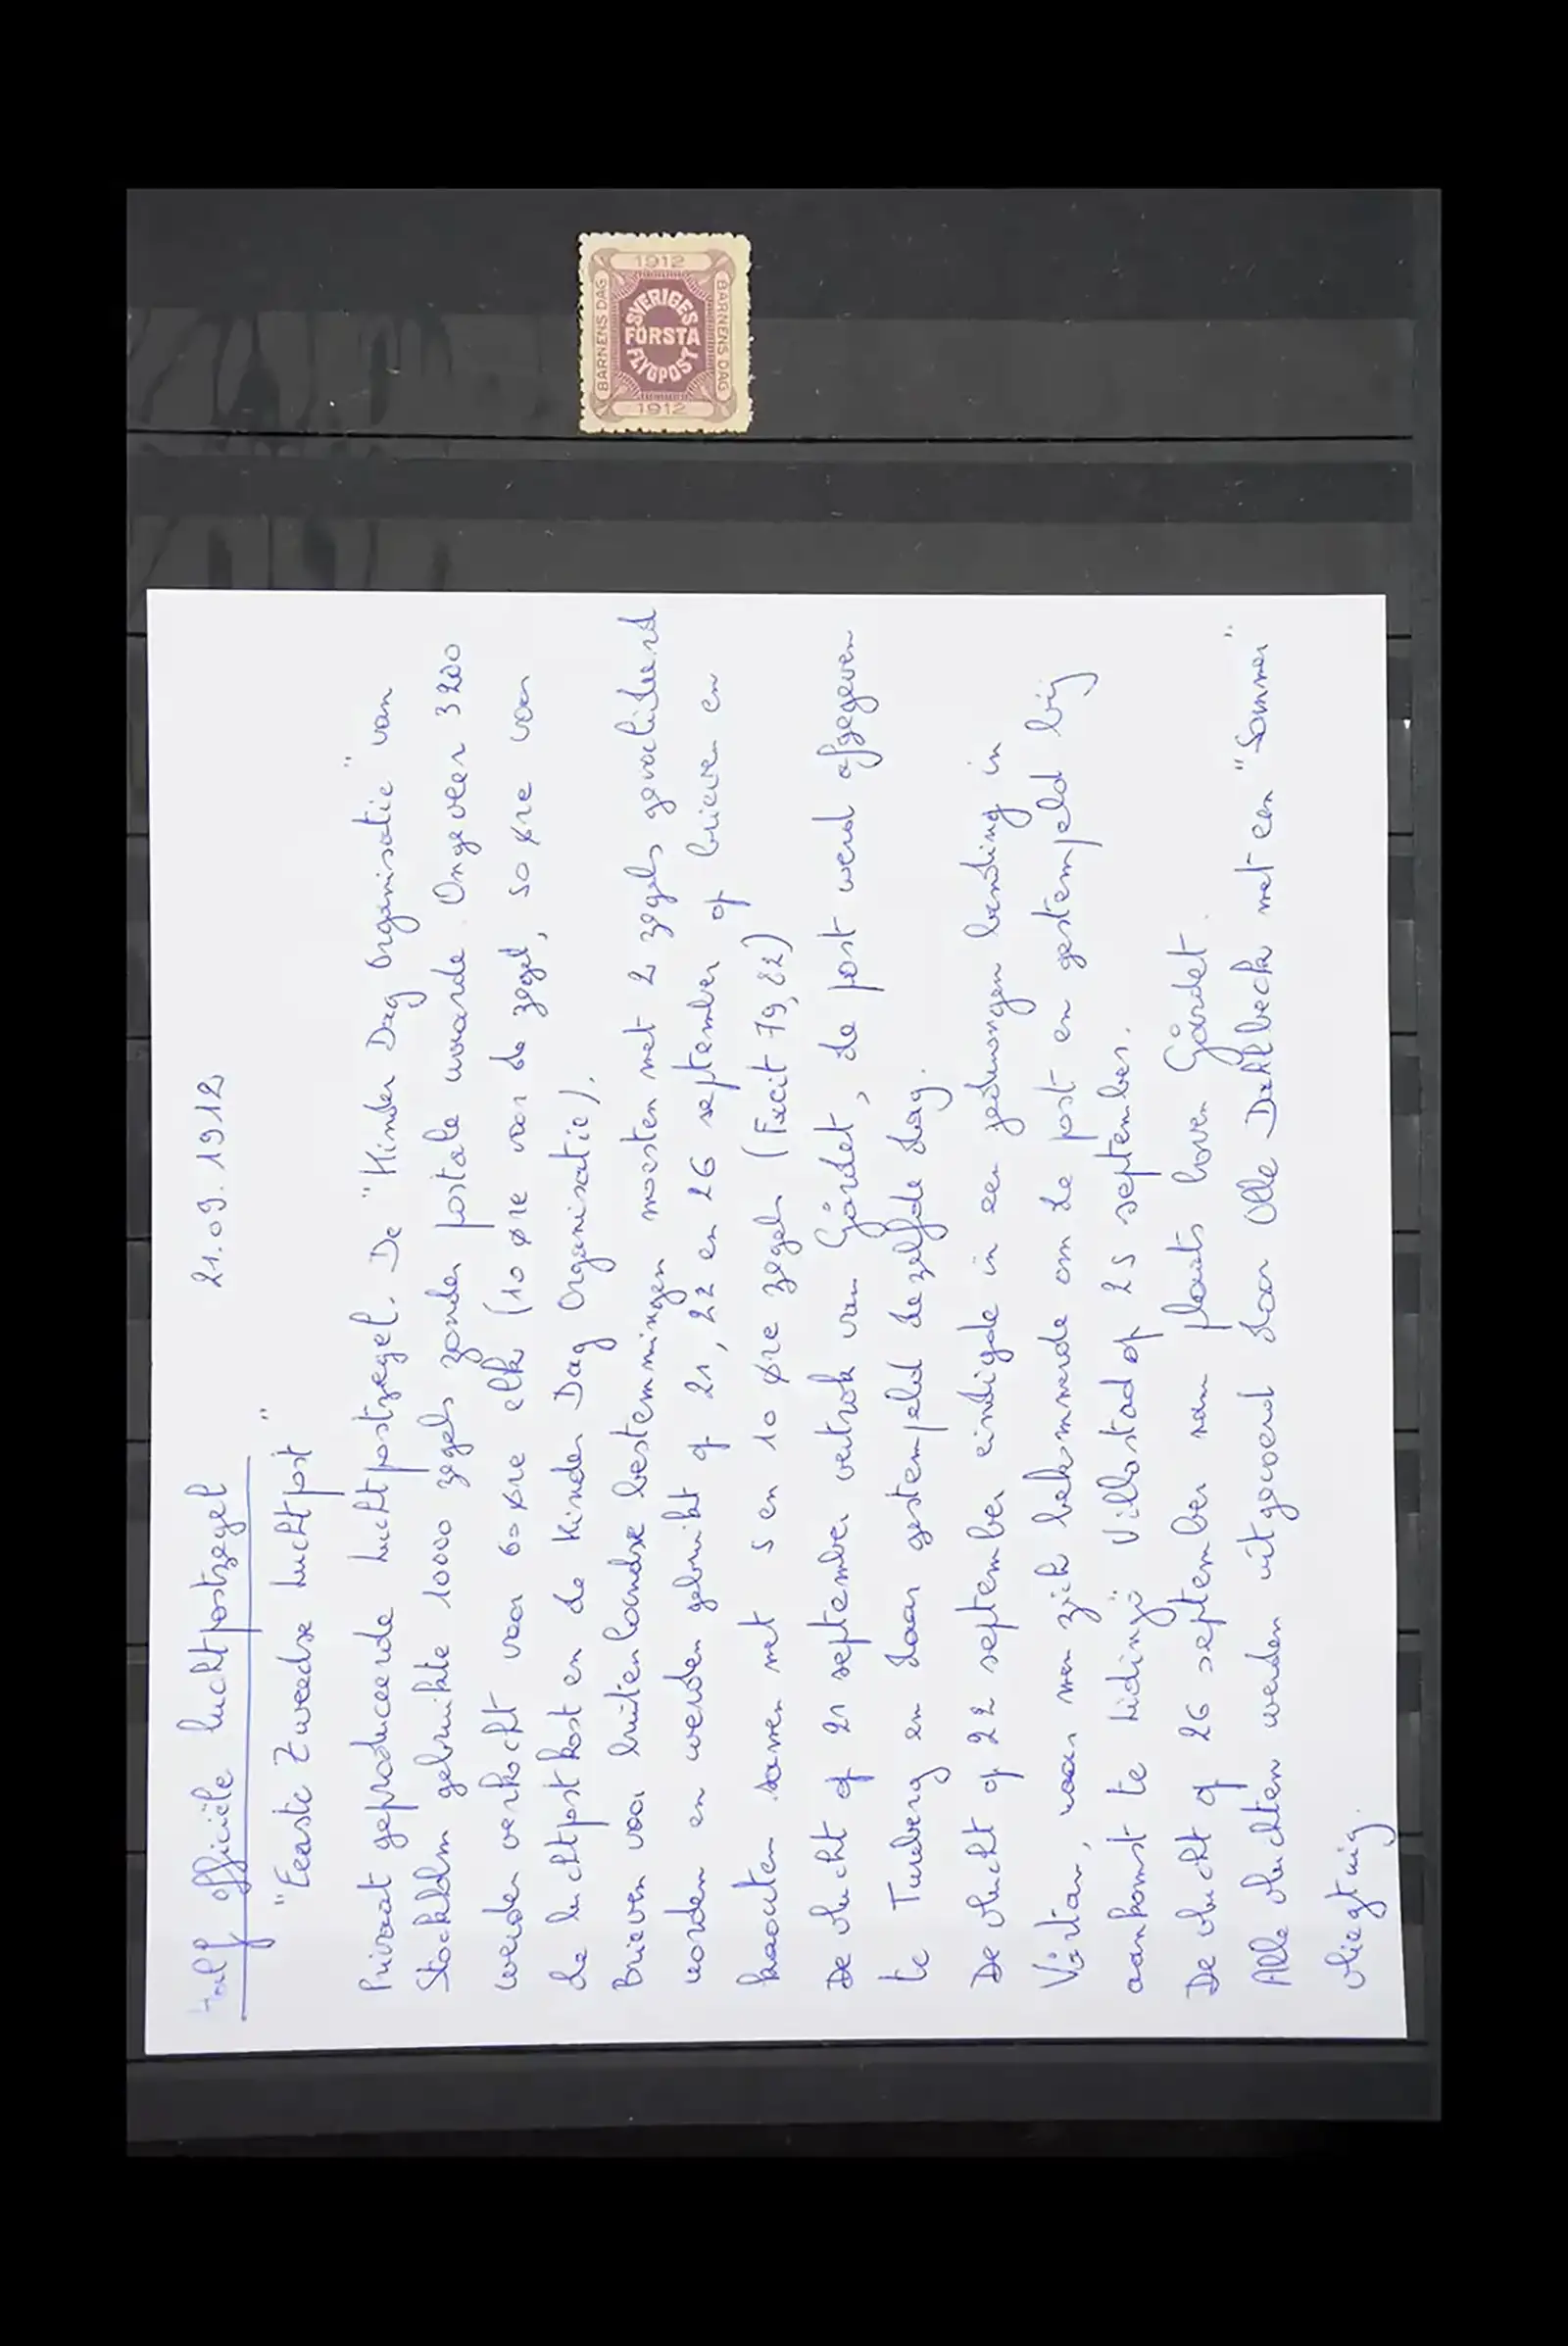 1912
BARNENS DAG
SVERIGES
FÖRSTA
FLYGPOST
BARNENS DAG
1912
Half officiële luchtpostzegel 21.09.1912
"Eerste Zweedse luchtpost"
Privaat geproduceerde luchtpostzegel. De "Kinder Dag Organisatie" van
Stockholm gebruikte 10000 zegels zonder postale waarde. Ongeveer 3200
werden verkocht voor 60 øre elk (10 øre voor de zegel, 50 øre voor
de luchtpostkost en de Kinder Dag Organisatie).
Brieven voor buitenlandse bestemmingen moesten met 2 zegels gevalideerd
worden en werden gebruikt op 21, 22 en 26 september op brieven en
kaarten samen met 5 en 10 øre zegels (Facit 79, 82)
De vlucht op 21 september vertrok van Gärdet, de post werd afgegeven
te Tureberg en daar gestempeld dezelfde dag.
De vlucht op 22 september eindigde in een gedwongen landing in
Värtan, waar men zich bekommerde om de post en gestempeld bij
aankomst te Lidingö Villastad op 25 september.
De vlucht op 26 september nam plaats boven Gärdet.
Alle vluchten werden uitgevoerd door Olle Dahlbeck met een "Sommer"
vliegtuig.